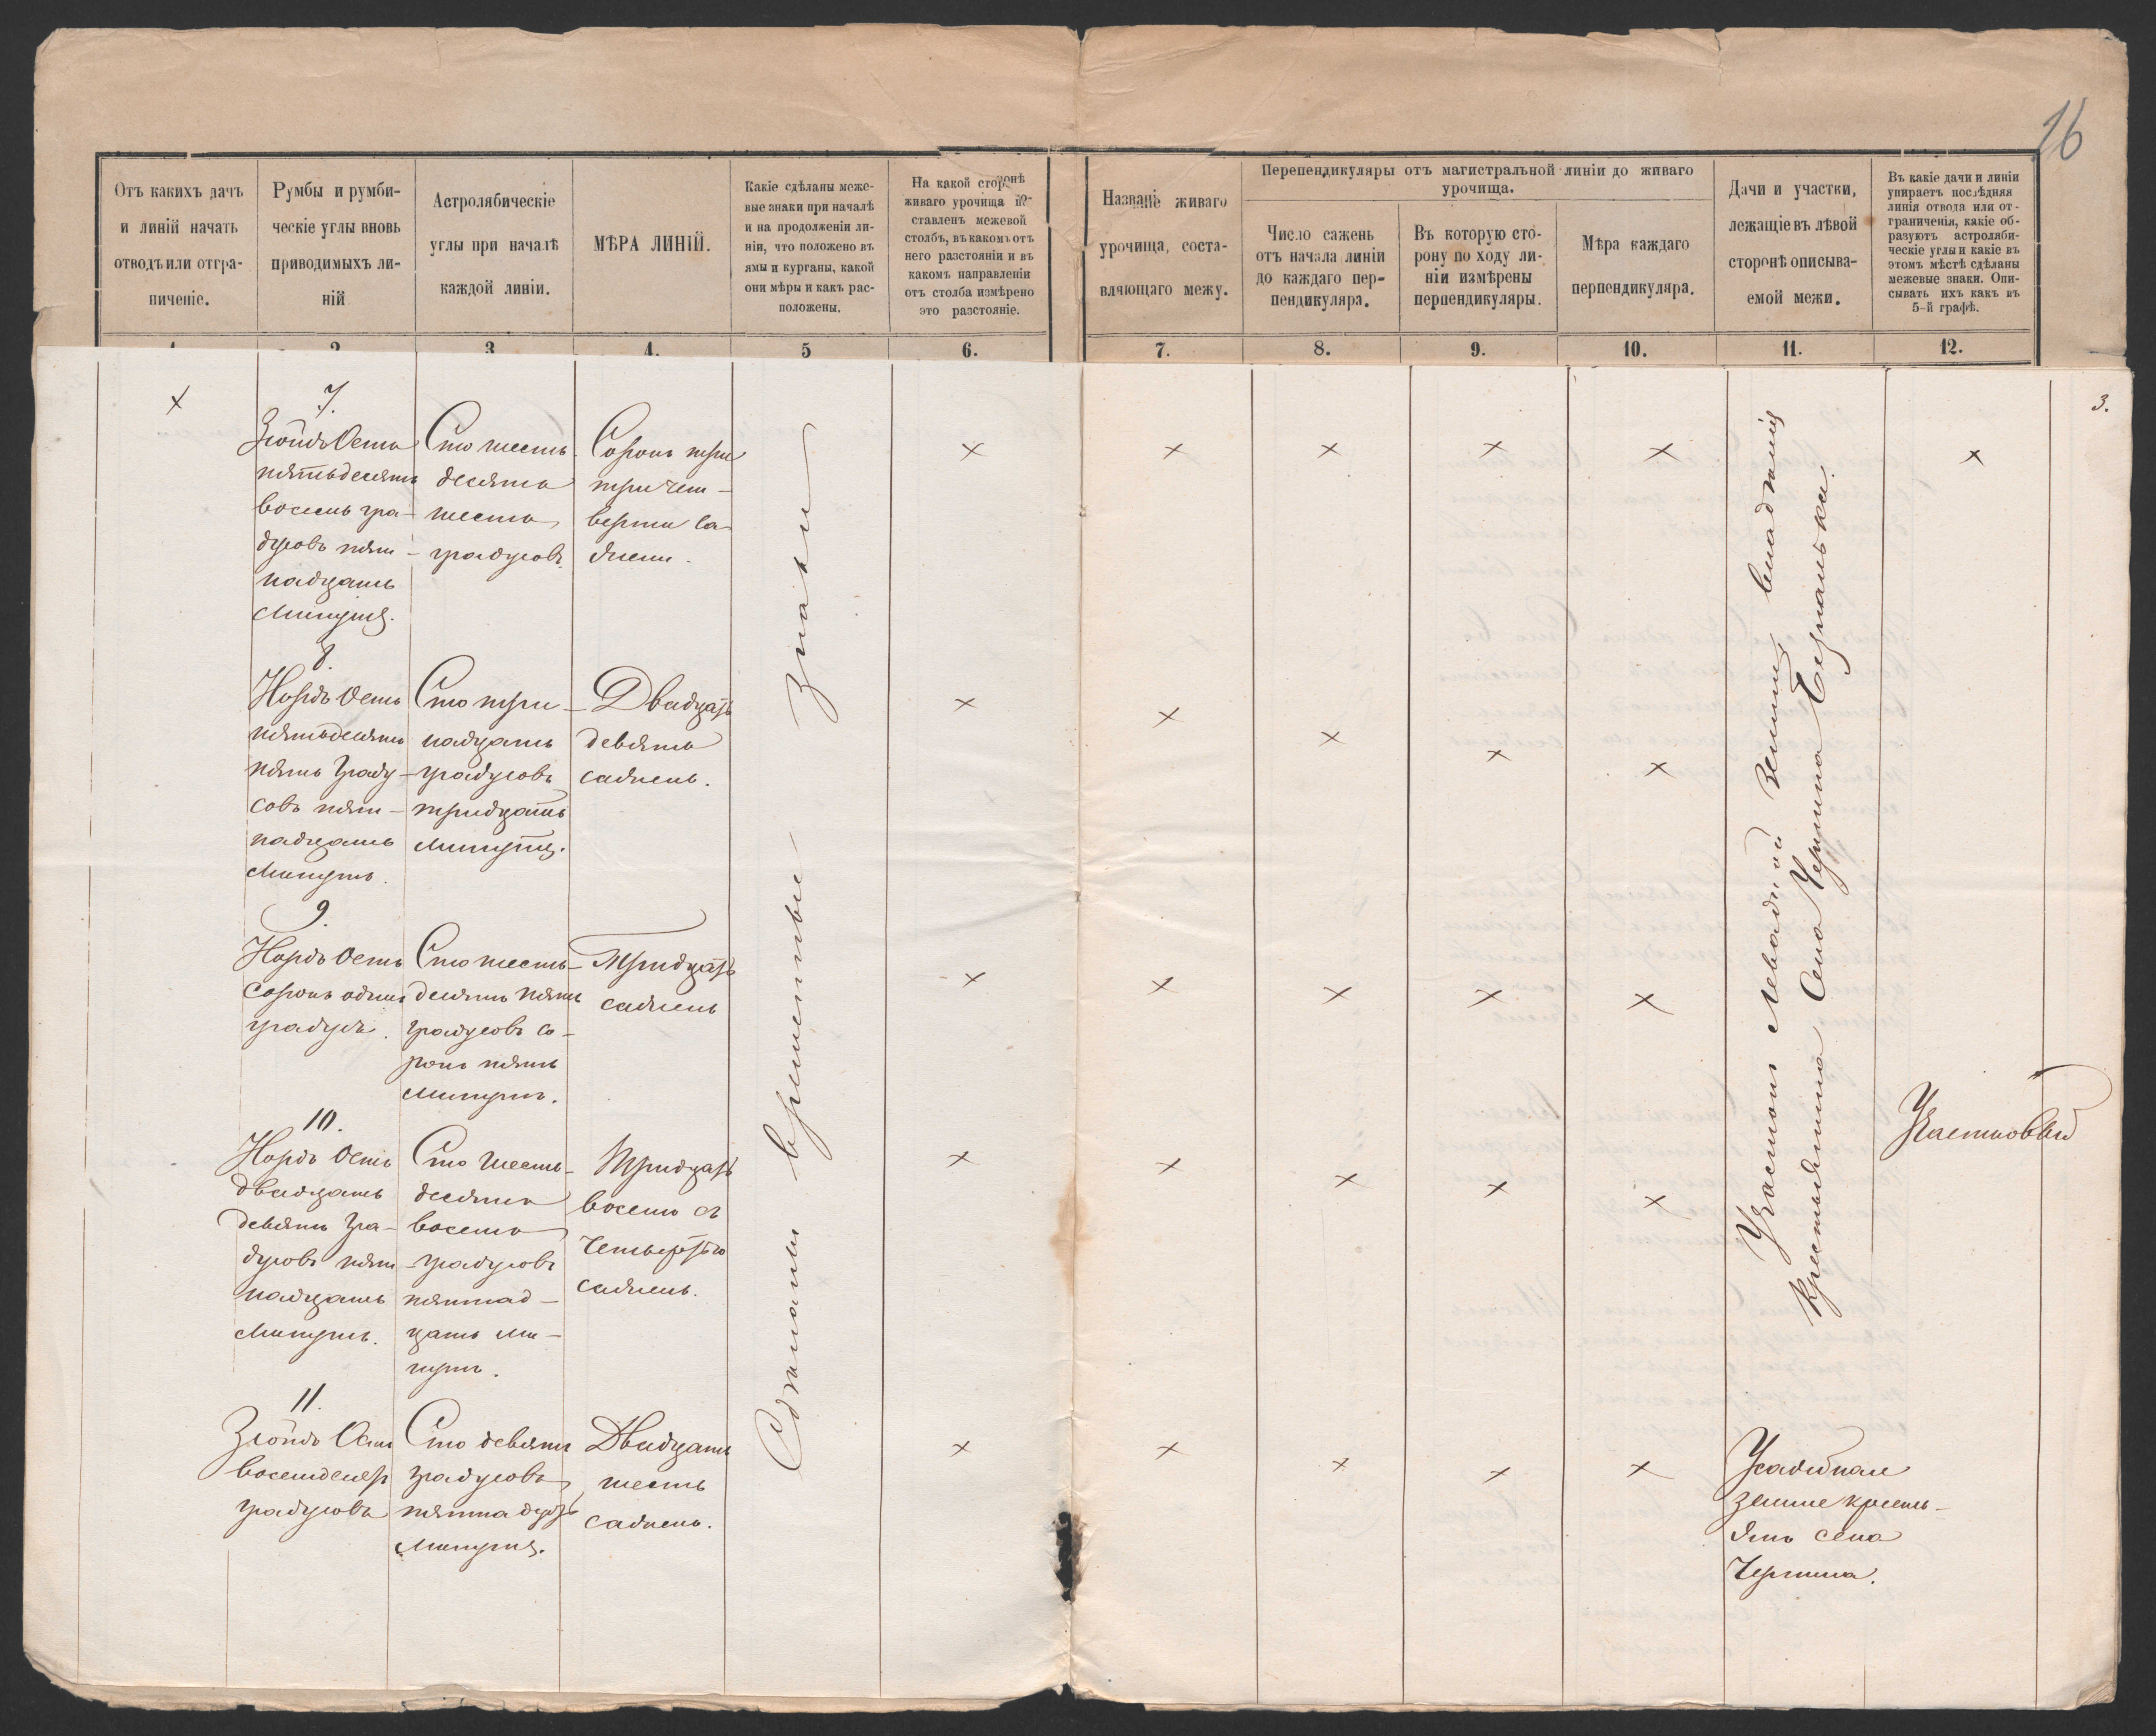 16
Отъ какихъ дачъ
и линій начать
отводъ или отгра-
ниченіе.
Румбы и румби-
ческіе углы вновь
приводимыхъ ли-
ній
Астролябическіе
углы при началѣ
каждой линіи.
МѢРА ЛИНІЙ.
Какіе сдѣланы меже-
вые знаки при началѣ
и на продолженіи ли-
ніи, что положено въ
ямы и курганы, какой
они мѣры и какъ рас-
положены.
На какой сторонѣ
живаго урочища по-
ставленъ межевой
столбъ, въ какомъ отъ
него разстояніи и въ
какомъ направленіи
отъ столба измѣрено
это разстояніе.
Названіе живаго
урочища, соста-
вляющаго межу.
Перепендикуляры отъ магистральной линіи до живаго
урочища.
Число сажень
отъ начала линіи
до каждаго пер-
пендикуляра.
Въ которую сто-
рону по ходу ли-
ніи измѣрены
перпендикуляры.
Мѣра каждаго
перпендикуляра.
Дачи и участки,
лежащіе въ лѣвой
сторонѣ описыва-
емой межи.
Въ какіе дачи и линіи
упираетъ послѣдняя
линія отвода или от-
граниченія, какіе об-
разуютъ астроляби-
ческіе углы и какіе въ
этомъ мѣстѣ сдѣланы
межевые знаки. Опи-
сывать ихъ какъ въ
5-й графѣ.
1 2 3 4. 5 6. 7. 8. 9. 10. 11. 12.
3.
×
7.
Зюйдъ Остъ
пятьдесятъ
восемь гра-
дусовъ пят-
надцать
минутъ.
Сто шесть
десятъ
шесть
градусовъ.
Сорокъ три
три чет-
верти са-
жени.
× × × × × ×
8.
Нордъ Остъ
пятьдесятъ
пять граду-
совъ пят-
надцать
минутъ.
Сто три-
надцать
градусовъ
тридцать
минутъ.
Двадцать
девять
сажень.
× × × × ×
9.
Нордъ Остъ
сорокъ одинъ
градусъ.
Сто шесть-
десятъ пять
градусовъ со-
рокъ пять
минутъ.
Тридцать
сажень
× × × × ×
10.
Нордъ Остъ
двадцать
девять гра-
дусовъ пят-
надцать
минутъ.
Сто шесть-
десятъ
восемь
градусовъ
пятнад-
цать ми-
нутъ.
Тридцать
восемь съ
четвертью
сажень.
× × × × ×
11.
Зюйдъ Остъ
восемдесятъ
градусовъ
Сто девять
градусовъ
пятнадцать
минутъ.
Двадцать
шесть
сажень.
× × × × ×
Сдѣланы временные знаки
Участокъ левадной земли, владѣнія
крестьянина Села Чернина Бернацька.
Усадебная
земля кресть-
янъ села
Чернина.
Участковый